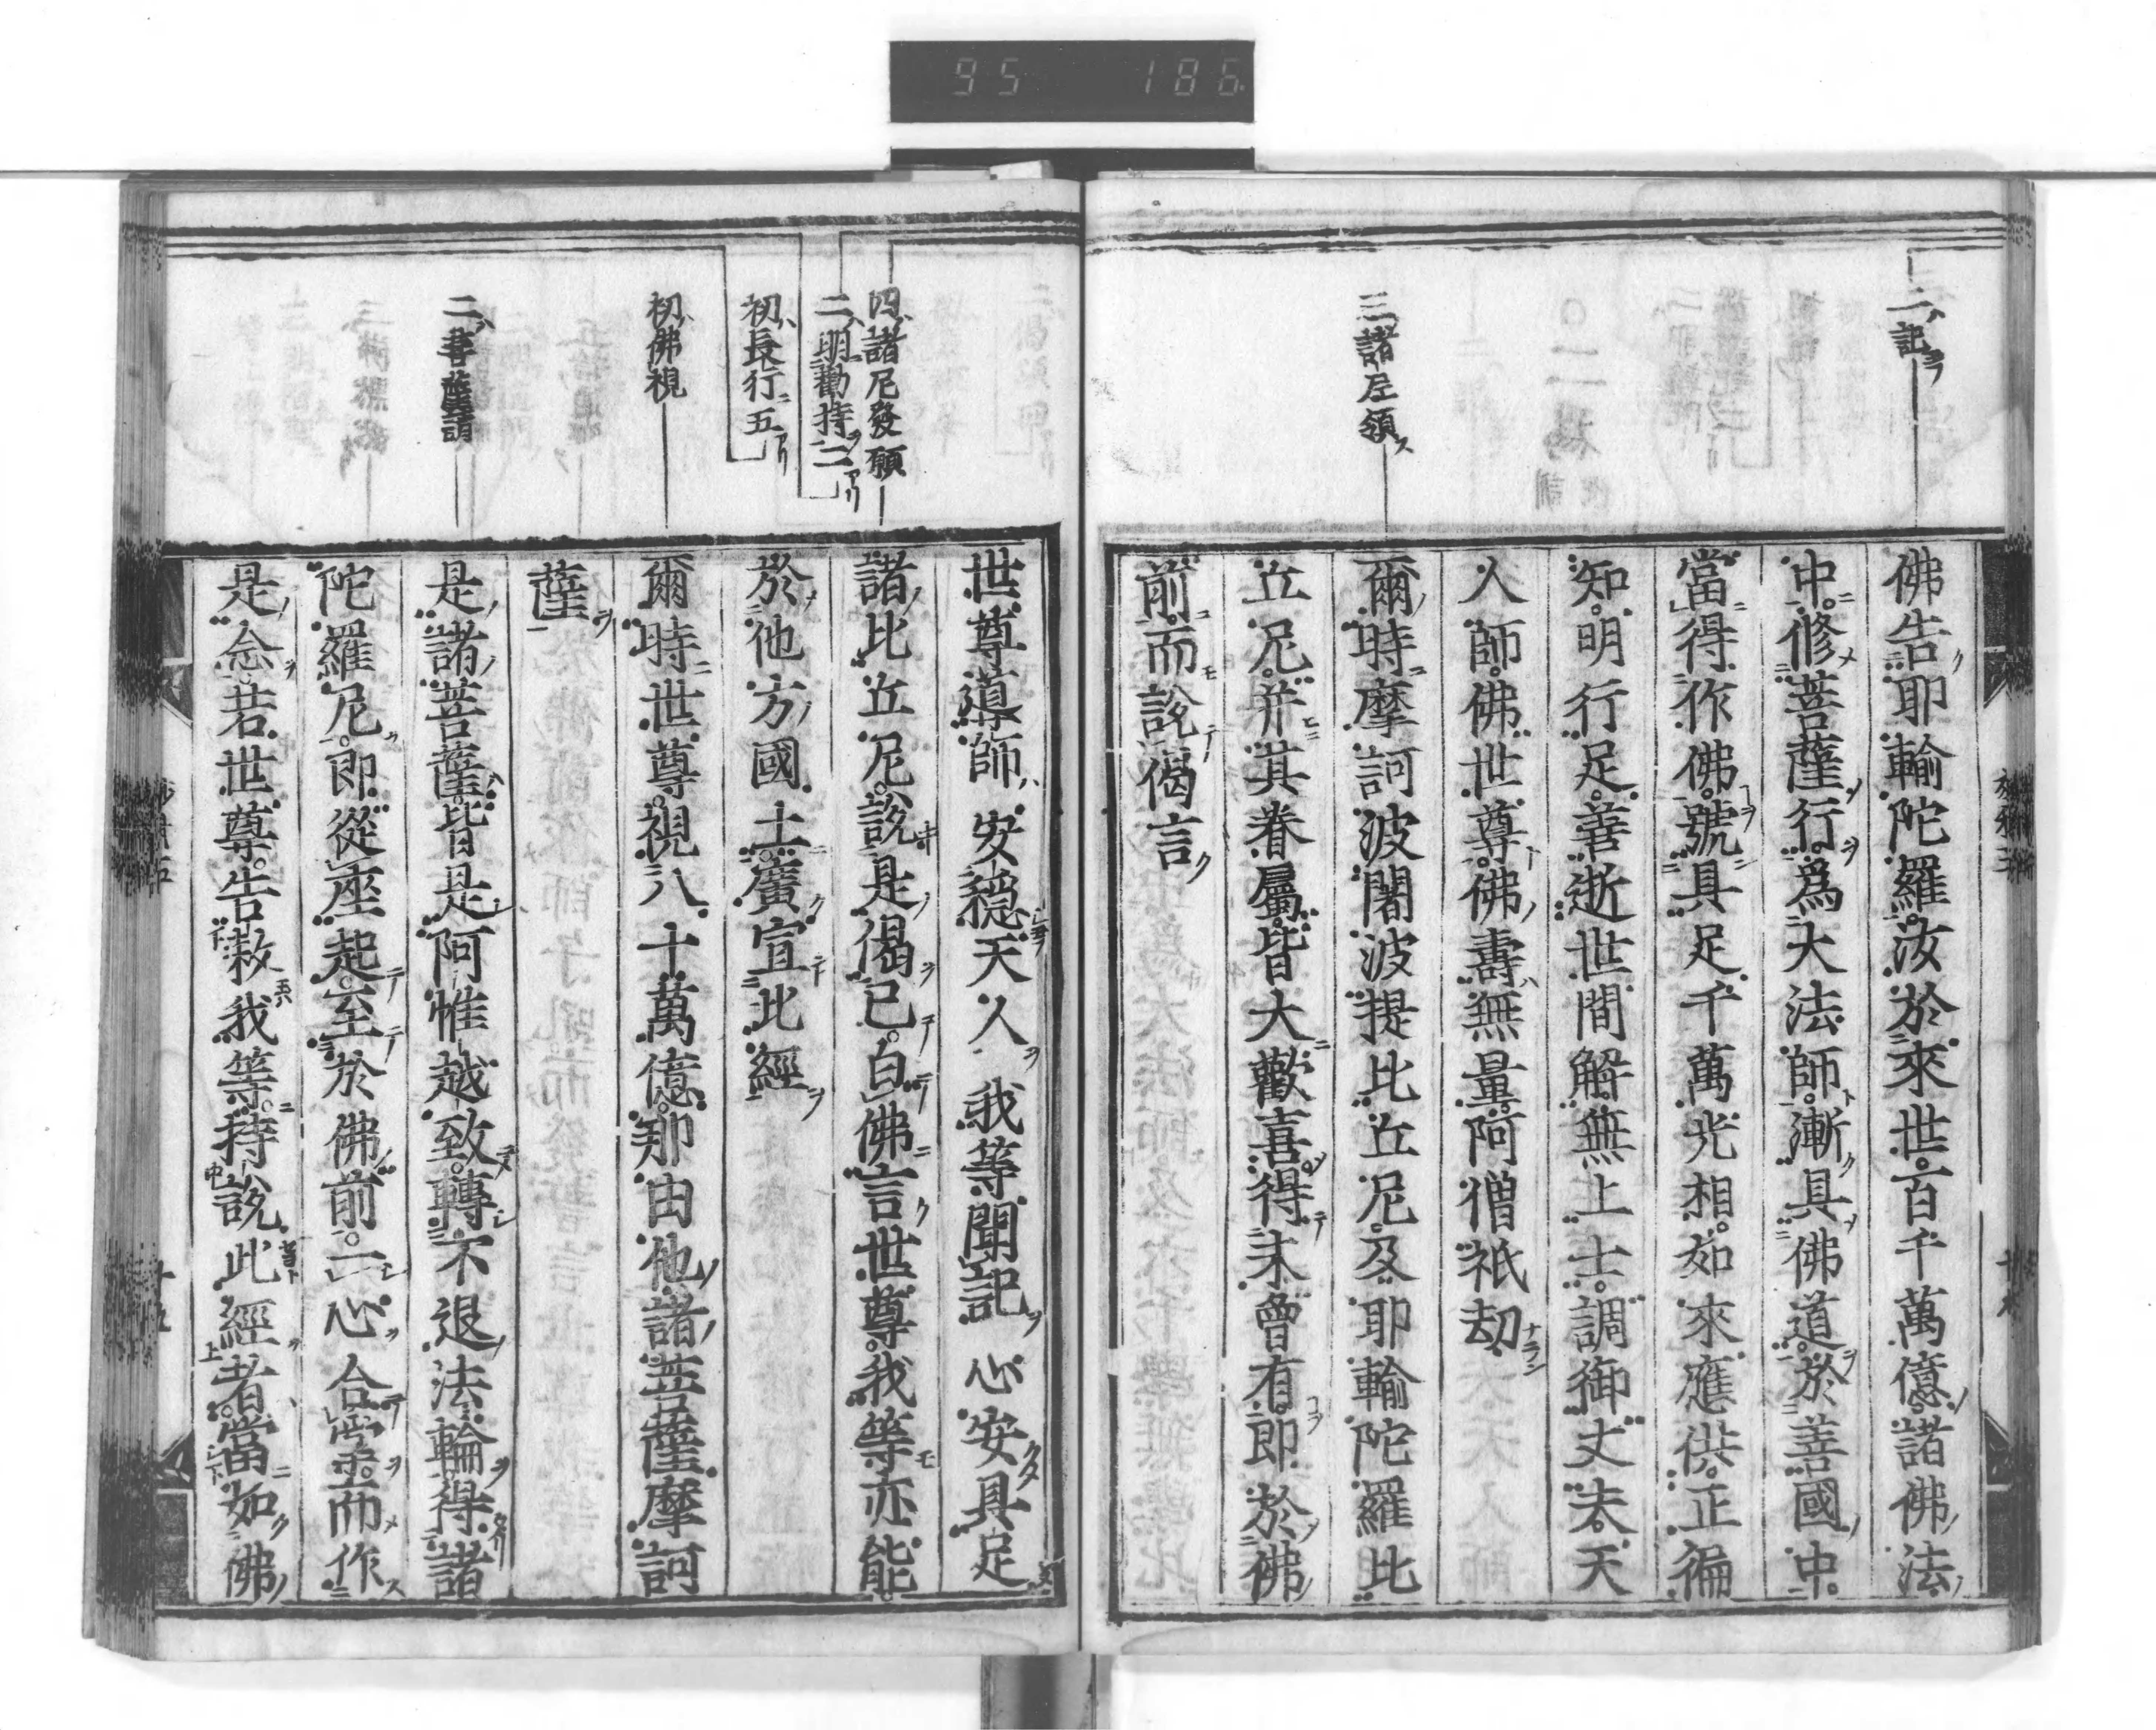 95 186
二記
佛告耶輸陀羅汝於來世百千萬億諸佛法
中修菩薩行爲大法師漸具佛道於善國中
當得作佛號具足千萬光相如來應供正徧
知明行足善逝世間解無上士調御丈夫天
人師佛世尊佛壽無量阿僧祇劫
三諸尼領
爾時摩訶波闍波提比丘尼及耶輸陀羅比
丘尼幷其眷屬皆大歡喜得未曾有即於佛
前而說偈言
世尊導師 安穩天人 我等聞記 心安具足
四諸尼發願
諸比丘尼說是偈已白佛言世尊我等亦能
於他方國土廣宣此經
二明勸持二
初長行五
初佛視
爾時世尊視八十萬億那由他諸菩薩摩訶
薩
二菩薩請
是諸菩薩皆是阿惟越致轉不退法輪得諸
陀羅尼即從座起至於佛前一心合掌而作
是念若世尊告敕我等持說此經者當如佛